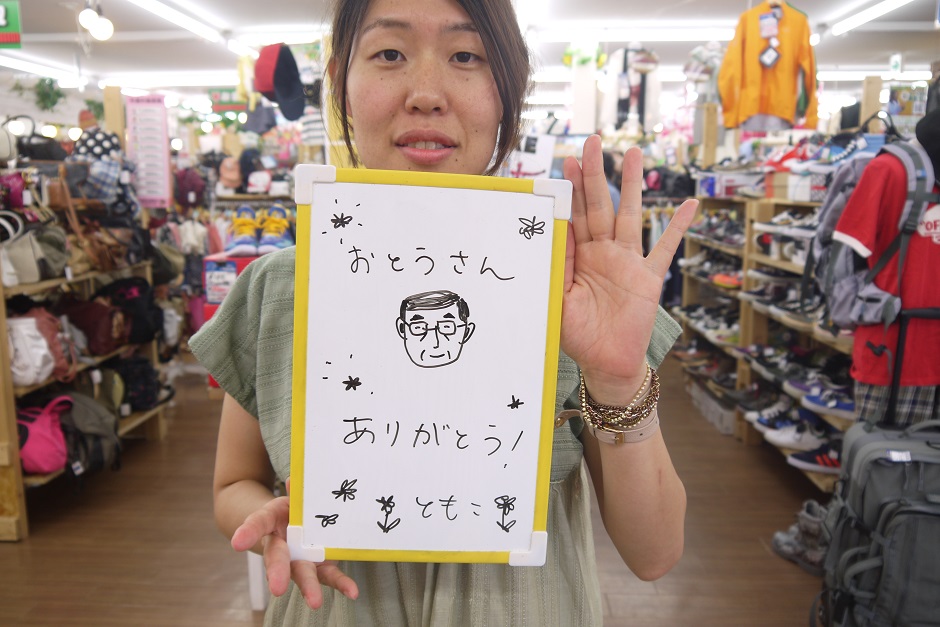 おとうさん
ありがとう!
ともこ